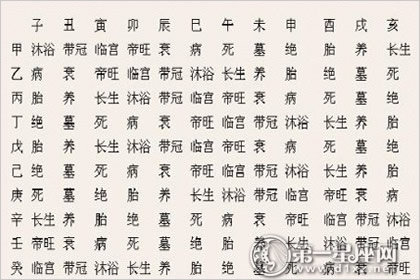 子 丑 寅 卯 辰 巳 午 未 申 酉 戌 亥
甲 沐浴 带冠 临宫 帝旺 衰 病 死 墓 绝 胎 养 长生
乙 病 衰 帝旺 临宫 带冠 沐浴 长生 养 胎 绝 墓 死
丙 胎 养 长生 沐浴 带冠 临宫 帝旺 衰 病 死 墓 绝
丁 绝 墓 死 病 衰 帝旺 临宫 带冠 沐浴 长生 养 胎
戊 胎 养 长生 沐浴 带冠 临宫 帝旺 衰 病 死 墓 绝
己 绝 墓 死 病 衰 帝旺 临宫 带冠 沐浴 长生 养 胎
庚 死 墓 绝 胎 养 长生 沐浴 带冠 临宫 帝旺 衰 病
辛 长生 养 胎 绝 墓 死 病 衰 帝旺 临宫 带冠 沐浴
壬 帝旺 衰 病 死 墓 绝 胎 养
癸 临宫 带冠 沐浴 长生 养 胎 绝 墓
第一星座网
www.d1xz.net